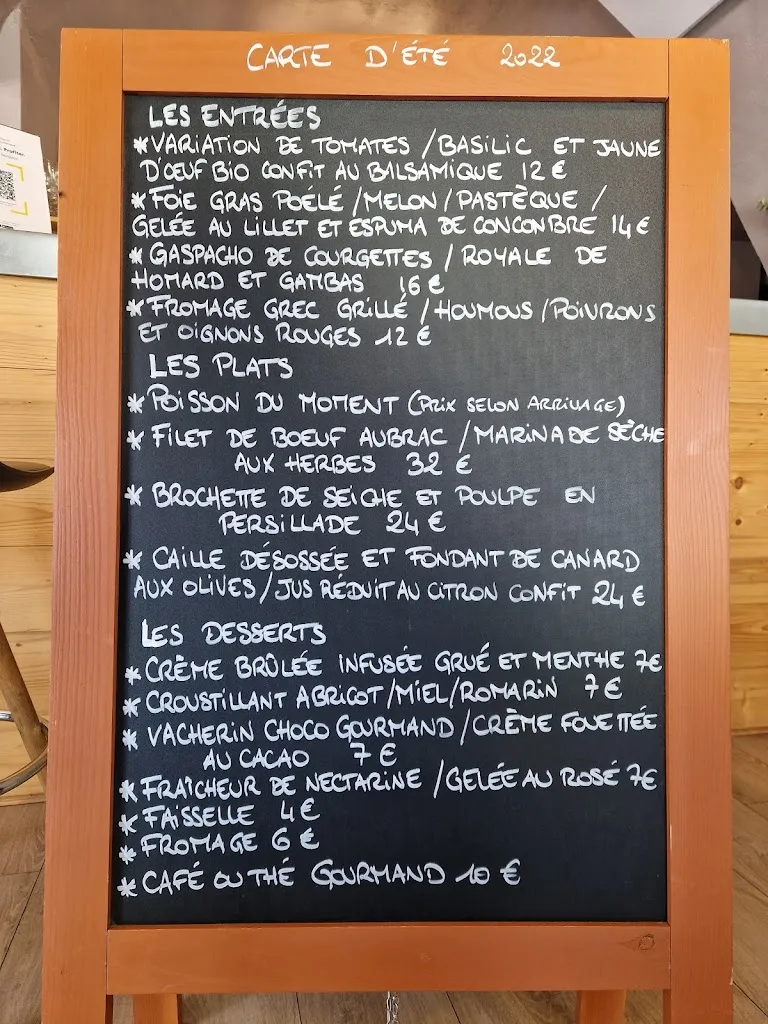 CARTE D'ÉTÉ 2022
LES ENTRÉES
*VARIATION DE TOMATES /BASILIC ET JAUNE
D'ŒUF BIO CONFIT AU BALSAMIQUE 12 €
*FOIE GRAS POÉLÉ /MELON/PASTÈQUE /
GELÉE AU LILLET ET ESPUMA DE CONCONBRE 14 €
* GASPACHO DE COURGETTES / ROYALE DE
HOMARD ET GAMBAS 16 €
*FROMAGE GREC GRILLÉ /HOUMOUS /POIVRONS
ET OIGNONS ROUGES 12 €
LES PLATS
* POISSON DU MOMENT (PRIX SELON ARRIVAGE)
* FILET DE BOEUF AUBRAC /MARINADE SÈCHE
AUX HERBES 32 €
* BROCHETTE DE SEICHE ET POULPE EN
PERSILLADE 24 €
* CAILLE DÉSOSSÉE ET FONDANT DE CANARD
AUX OLIVES/JUS RÉDUIT AU CITRON CONFIT 24 €
LES DESSERTS
*CRÈME BRÛLÉE INFUSÉE GRUÉ ET MENTHE 7€
*CROUSTILLANT ABRICOT/MIEL/ROMARIN 7 €
* VACHERIN CHOCO GOURMAND /CRÈME FOUETTÉE
AU CACAO 7 €
*FRAÎCHEUR DE NECTARINE /GELÉE AU ROSÉ 7€
*FAISSELLE 4 €
*FROMAGE 6 €
*CAFÉ OU THÉ GOURMAND 10 €